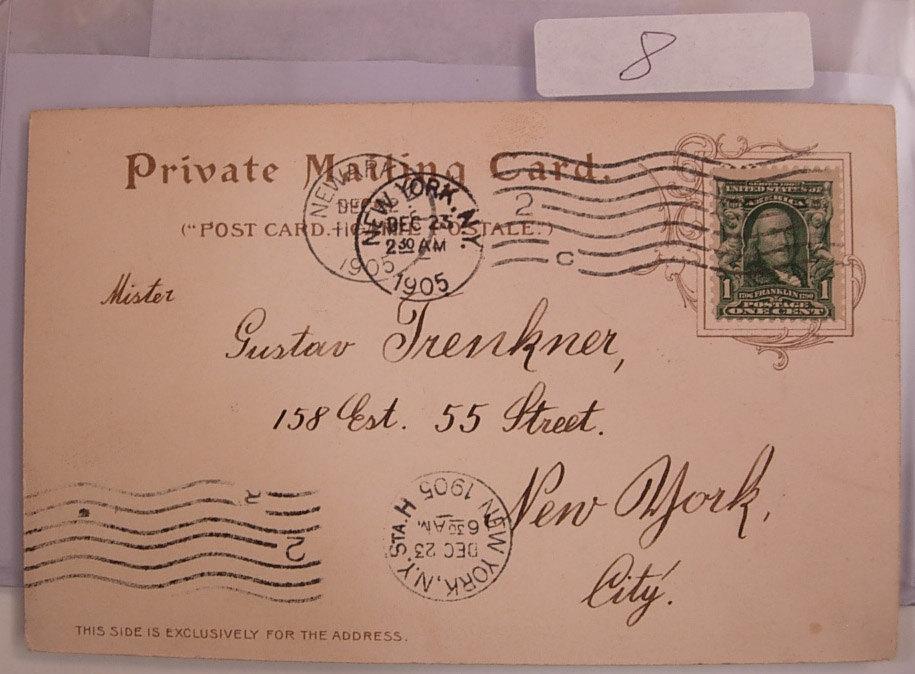 8
Private Mailing Card.
("POST CARD.
POSTALE.")
NEW YORK, N.Y.
DEC 23
2 30 AM
1905
NEW
DEC
1905
2
C
SERIES 1902
UNITED STATES OF
AMERICA
1 1706 FRANKLIN 1790 1
POSTAGE
ONE CENT
Mister
Gustav Trenkner,
158 Est. 55 Street.
New York,
City.
NEW YORK, N.Y. STA. H
DEC 23
6 30 AM
1905
2
2
THIS SIDE IS EXCLUSIVELY FOR THE ADDRESS.